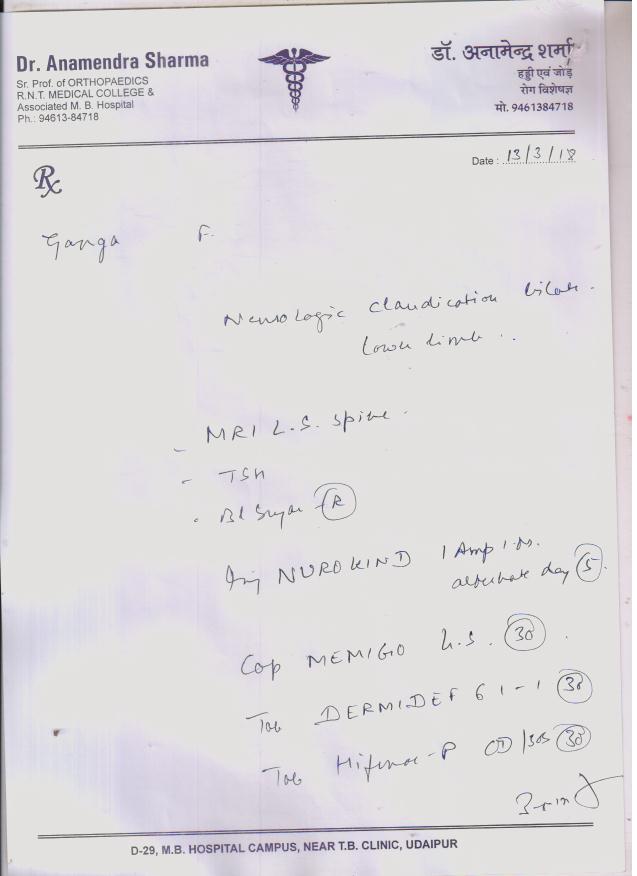 Dr. Anamendra Sharma
Sr. Prof. of ORTHOPAEDICS
R.N.T. MEDICAL COLLEGE &
Associated M. B. Hospital
Ph.: 94613-84718
डॉ. अनामेन्द्र शर्मा
हड्डी एवं जोड़
रोग विशेषज्ञ
मो. 9461384718
Date : 13/3/18
Rx
Ganga F.
Neurologic claudication bilat.
lower limb ..
- MRI L.S. Spine.
- TSH
- Bl Sugar (R)
Inj NUROKIND 1 Amp I.M.
alternate day (5)
Cap MEMIGO h.s. (30)
Tab DERMIDEF 6 1-1 (30)
Tab Hifenac-P OD/ (30)
D-29, M.B. HOSPITAL CAMPUS, NEAR T.B. CLINIC, UDAIPUR